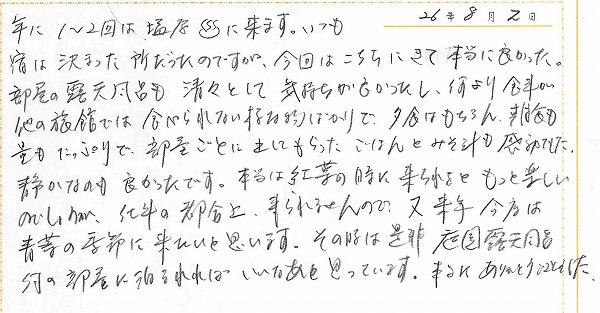 26年8月2日
年に1〜2回は塩原♨に来ます。いつも
宿は決まった所だったのですが、今回はこちらにきて本当に良かった。
部屋の露天風呂も清々として気持ちが良かったし、何より食事が
他の旅館では食べられない様な物ばかりで、夕食はもちろん、朝食も
量もたっぷりで、部屋ごとに出してもらったごはんとみそ汁も感動でした。
静かなのも良かったです。本当は紅葉の時に来られるともっと楽しい
のでしょうが、仕事の都合上、来られませんので、又来年今度は
青葉の季節に来たいと思います。その時は是非庭園露天風呂
付の部屋に泊まれればいいなあと思っています。本当にありがとうございました。